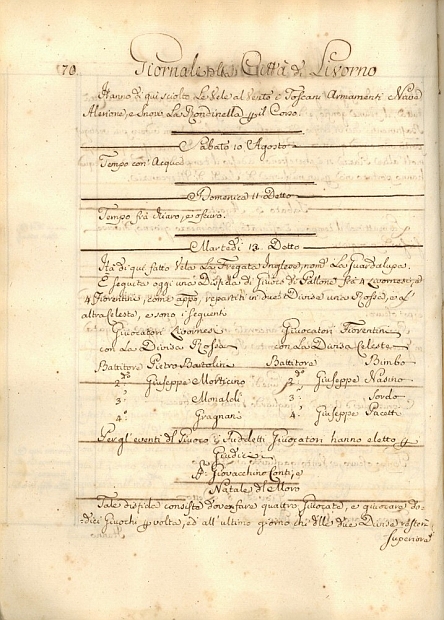 70. Giornale della Città di Livorno
Hanno di qui sciolto Le Vele al Vento i Toscani Armamenti Nave
Alerione, e Snow La Rondinella il Corso.
Sabato 10 Agosto
Tempo con Acqua
Domenica 11 Detto
Tempo frà chiaro, e oscuro.
Martedi 13. Detto
Hà di qui fatto Vela La Fregata Inglese, nom. La Guardalupa.
È seguita oggi una Disfida di Giuoco di Pallone frà 4 Livornesi, e
4 Fiorentini, come app.o, repartiti in due Divise una Rossa, e l'
altra Celeste, e sono i seguenti
Giuocatori Livornesi Giuocatori Fiorentini
con La Divisa Rossa, con La Divisa Celeste
Battitore Pietro Bartolini Battitore Bimbo
2.do Giuseppe Morticino 2.do Giuseppe Nasino
3.o Monaldi 3.o Sordo
4.o Gragnani 4.o Giuseppe Pacetti
Per gl'eventi del Giuoco i Suddetti Giuocatori hanno eletto
Giudici
Giovacchino Conti, e
Natale del Moro
Tale disfida consiste dover fare quattro Giuocate, e giuocare do=
dici Giuochi volta, ed all'ultimo giorno chi delle due Divise resterà
Superiore